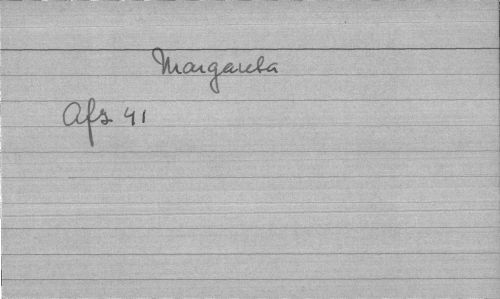 Margareta
Afz 41